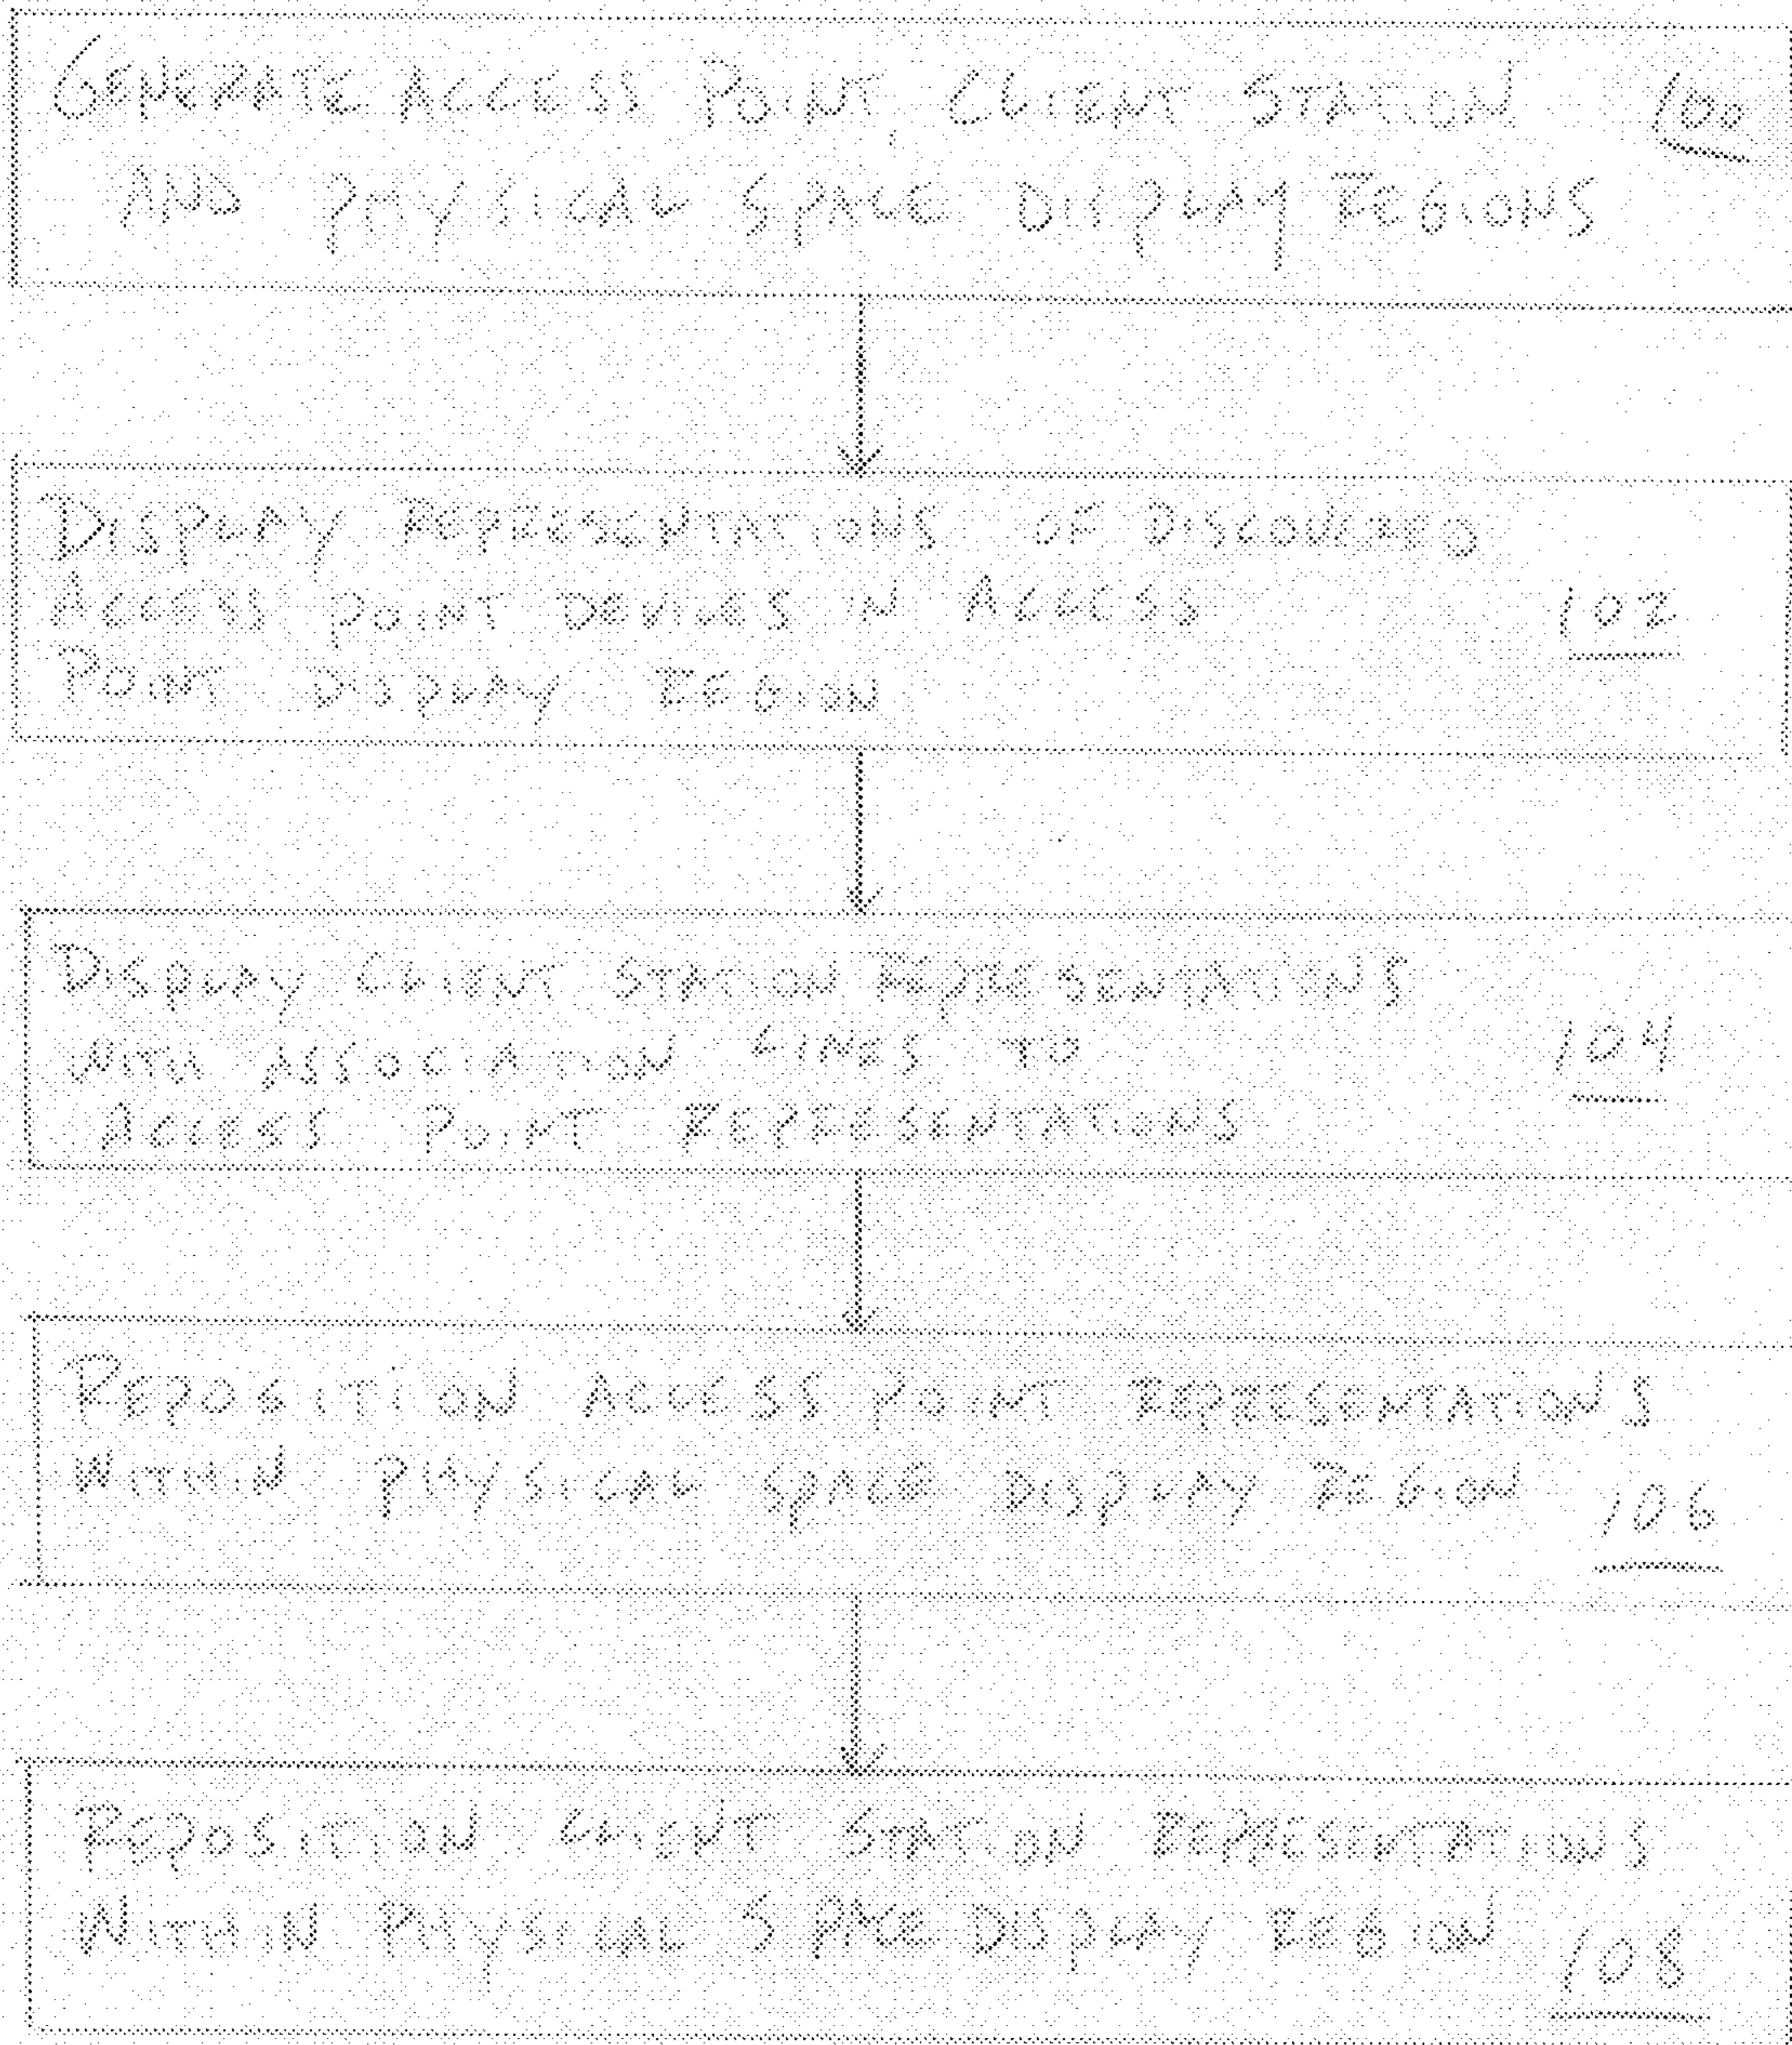 GENERATE ACCESS POINT, CLIENT STATION 100
AND PHYSICAL SPACE DISPLAY REGIONS
DISPLAY REPRESENTATIONS OF DISCOVERED
ACCESS POINT DEVICES IN ACCESS 102
POINT DISPLAY REGION
DISPLAY CLIENT STATION REPRESENTATIONS
WITH ASSOCIATION LINES TO 104
ACCESS POINT REPRESENTATIONS
REPOSITION ACCESS POINT REPRESENTATIONS
WITHIN PHYSICAL SPACE DISPLAY REGION 106
REPOSITION CLIENT STATION REPRESENTATIONS
WITHIN PHYSICAL SPACE DISPLAY REGION 108